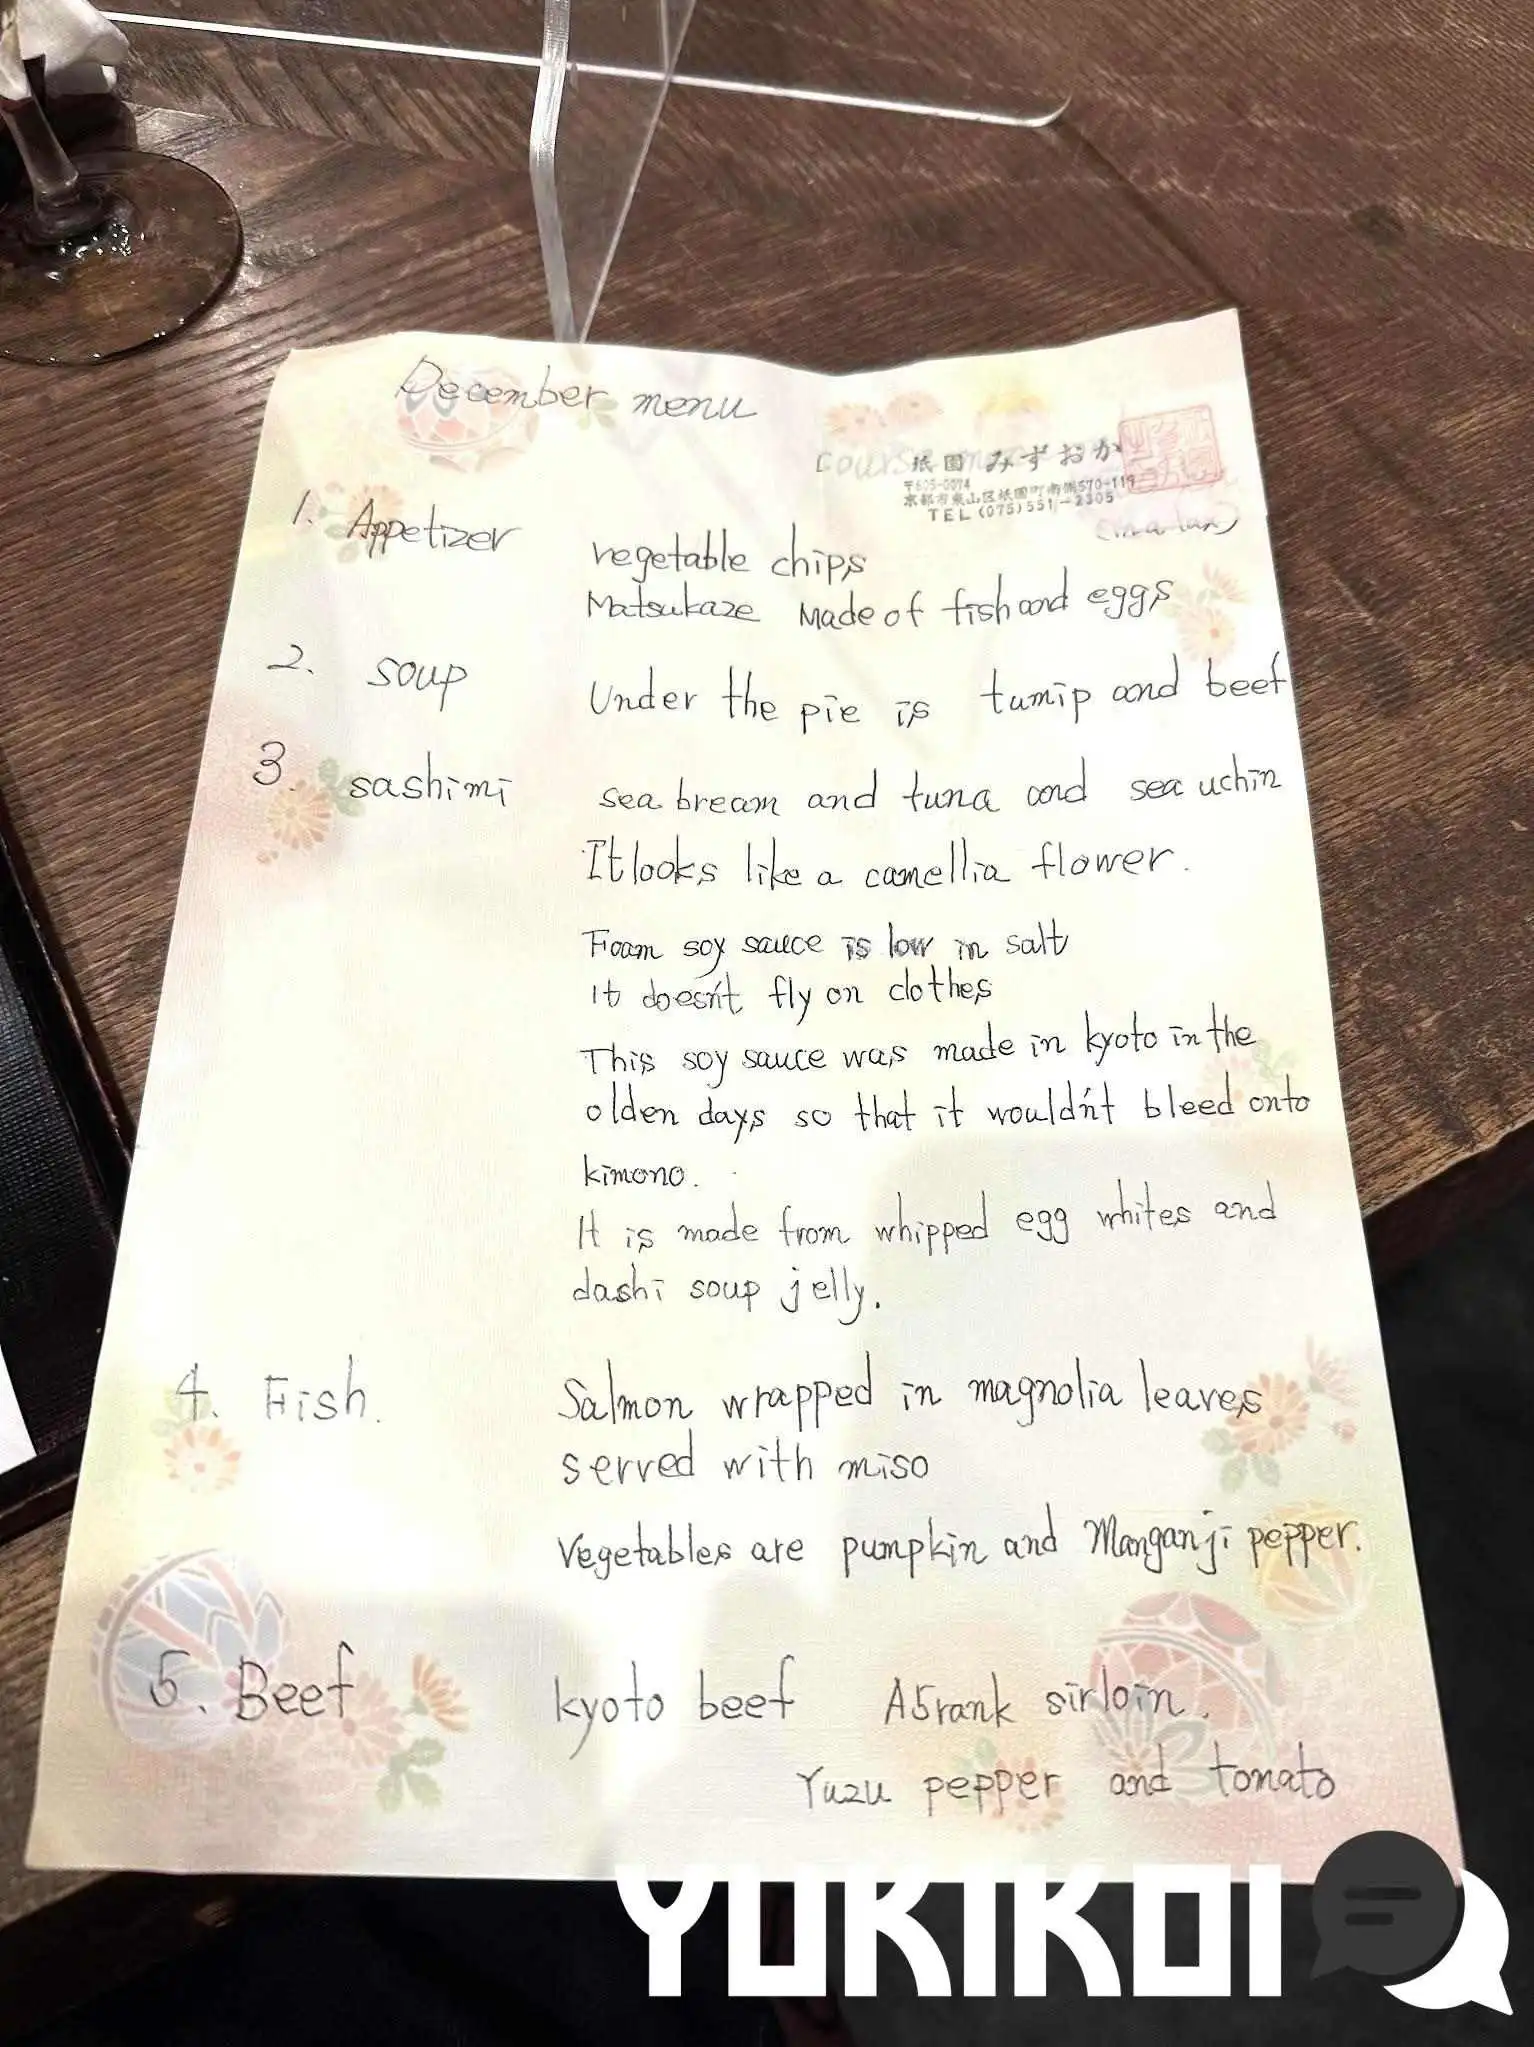 December menu
祇園 みずおか
〒605-0074
京都市東山区祇園町南側570-119
TEL (075)551-2305
1. Appetizer
vegetable chips
Matsukaze Made of fish and eggs
2. soup
Under the pie is turnip and beef
3. sashimi
sea bream and tuna and sea uchin
It looks like a camellia flower.
Foam soy sauce is low in salt
It doesn't fly on clothes
This soy sauce was made in kyoto in the
olden days so that it wouldn't bleed onto
kimono.
It is made from whipped egg whites and
dashi soup jelly.
4. Fish.
Salmon wrapped in magnolia leaves
served with miso
Vegetables are pumpkin and Manganji pepper.
5. Beef
kyoto beef A5rank sirloin.
Yuzu pepper and tomato
YUKIKOI